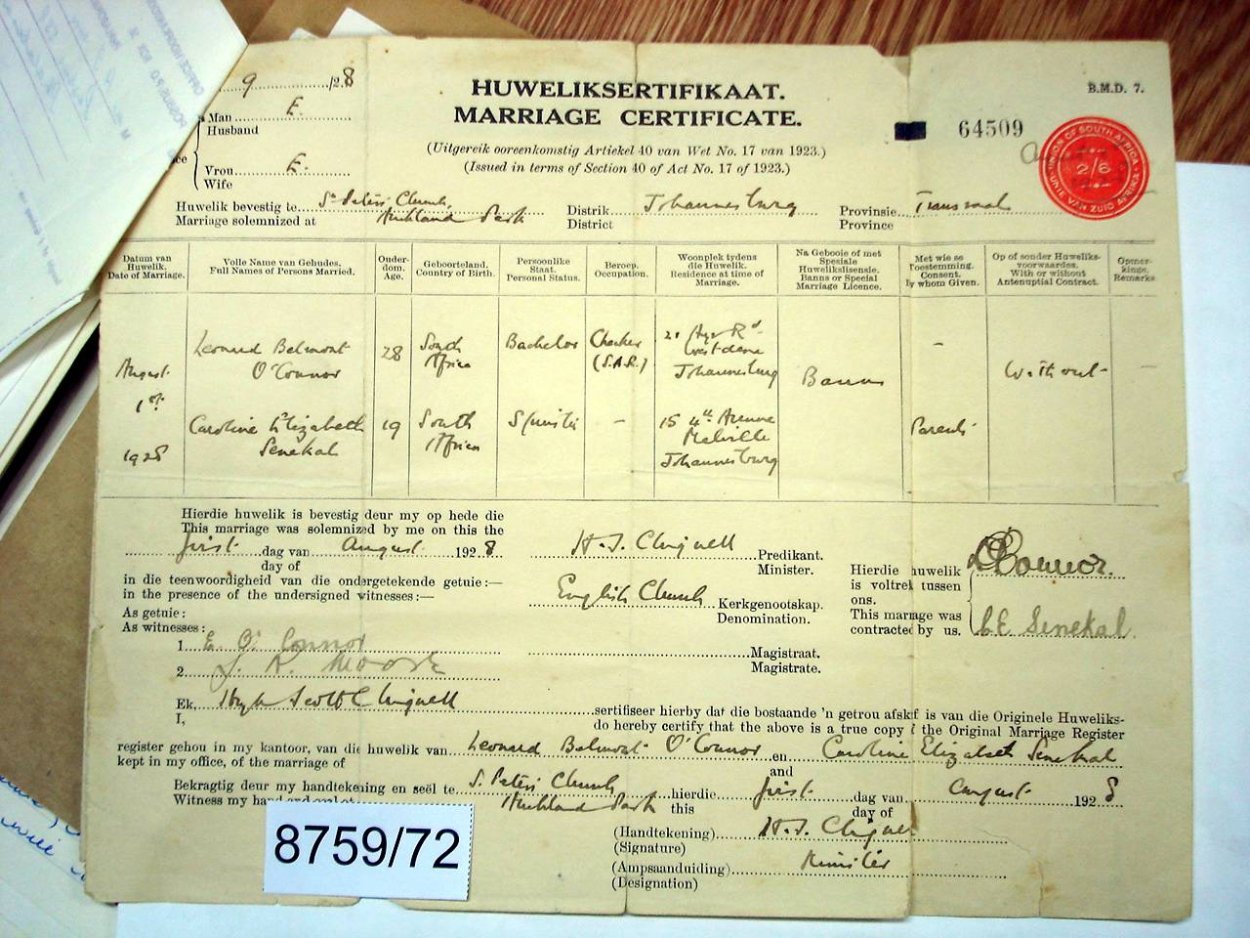 9 /28
HUWELIKSERTIFIKAAT.
MARRIAGE CERTIFICATE.
B.M.D. 7.
64509
UNION OF SOUTH AFRICA
2/6
UNIE VAN ZUID AFRIKA
(Uitgereik ooreenkomstig Artiekel 40 van Wet No. 17 van 1923.)
(Issued in terms of Section 40 of Act No. 17 of 1923.)
Man E.
Husband
Vrou E.
Wife
Huwelik bevestig te St Peters Church,
Marriage solemnized at Auckland Park
Distrik Johannesburg
District
Provinsie Transvaal
Province
Datum van Huwelik. Date of Marriage.
Volle Name van Gehudes. Full Names of Persons Married.
Ouderdom. Age.
Geboorteland. Country of Birth.
Persoonlike Staat. Personal Status.
Beroep. Occupation.
Woonplek tydens die Huwelik. Residence at time of Marriage.
Na Gebooie of met Spesiale Huwelikslisensie. Banns or Special Marriage Licence.
Met wie se Toestemming. Consent. By whom Given.
Op of sonder Huweliksvoorwaarden. With or without Antenuptial Contract.
Opmerkinge. Remarks
August 1st 1928
Leonard Belmont O'Connor
28
South Africa
Bachelor
Checker (S.A.R.)
Westdene Johannesburg
Banns
-
Without
-
Caroline Elizabeth Senekal
19
South Africa
Spinster
-
15 4th Avenue Melville Johannesburg
Parents
Hierdie huwelik is bevestig deur my op hede die
This marriage was solemnized by me on this the
first dag van August 1928
day of
in die teenwoordigheid van die ondergetekende getuie:—
in the presence of the undersigned witnesses:—
As getuie:
As witnesses:
1 E. O'Connor
2 J. R. Moore
Predikant.
Minister.
English Church Kerkgenootskap.
Denomination.
Magistraat.
Magistrate.
Hierdie huwelik
is voltrek tussen
ons.
This marriage was
contracted by us.
L B O'Connor.
C. E. Senekal.
Ek, Hugh Scott Chignell sertifiseer hierby dat die bostaande 'n getrou afskrif is van die Originele Huweliks-
I, do hereby certify that the above is a true copy the Original Marriage Register
register gehou in my kantoor, van die huwelik van Leonard Belmont O'Connor en Caroline Elizabeth Senekal
kept in my office, of the marriage of and
Bekragtig deur my handtekening en seël te S. Peters Church hierdie first dag van August 1928
Witness my hand Auckland Park this day of
(Handtekening) H. S. Chignell
(Signature)
(Ampsaanduiding) Minister
(Designation)
8759/72